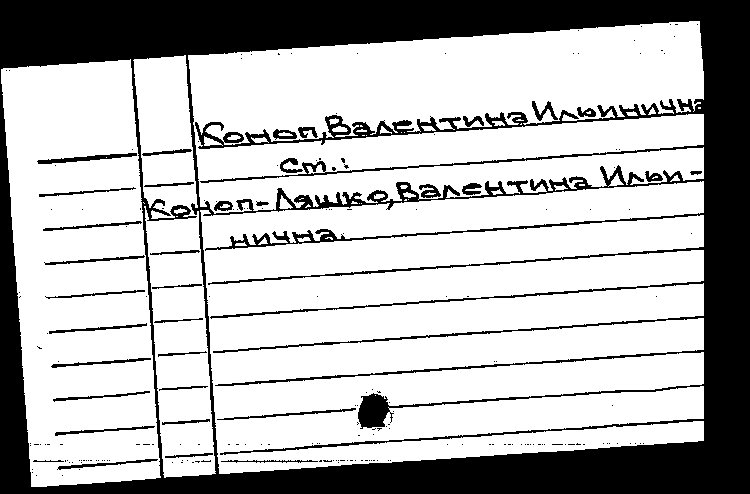 Коноп, Валентина Ильинична
ст.:
Коноп-Ляшко, Валентина Ильи-
нична.